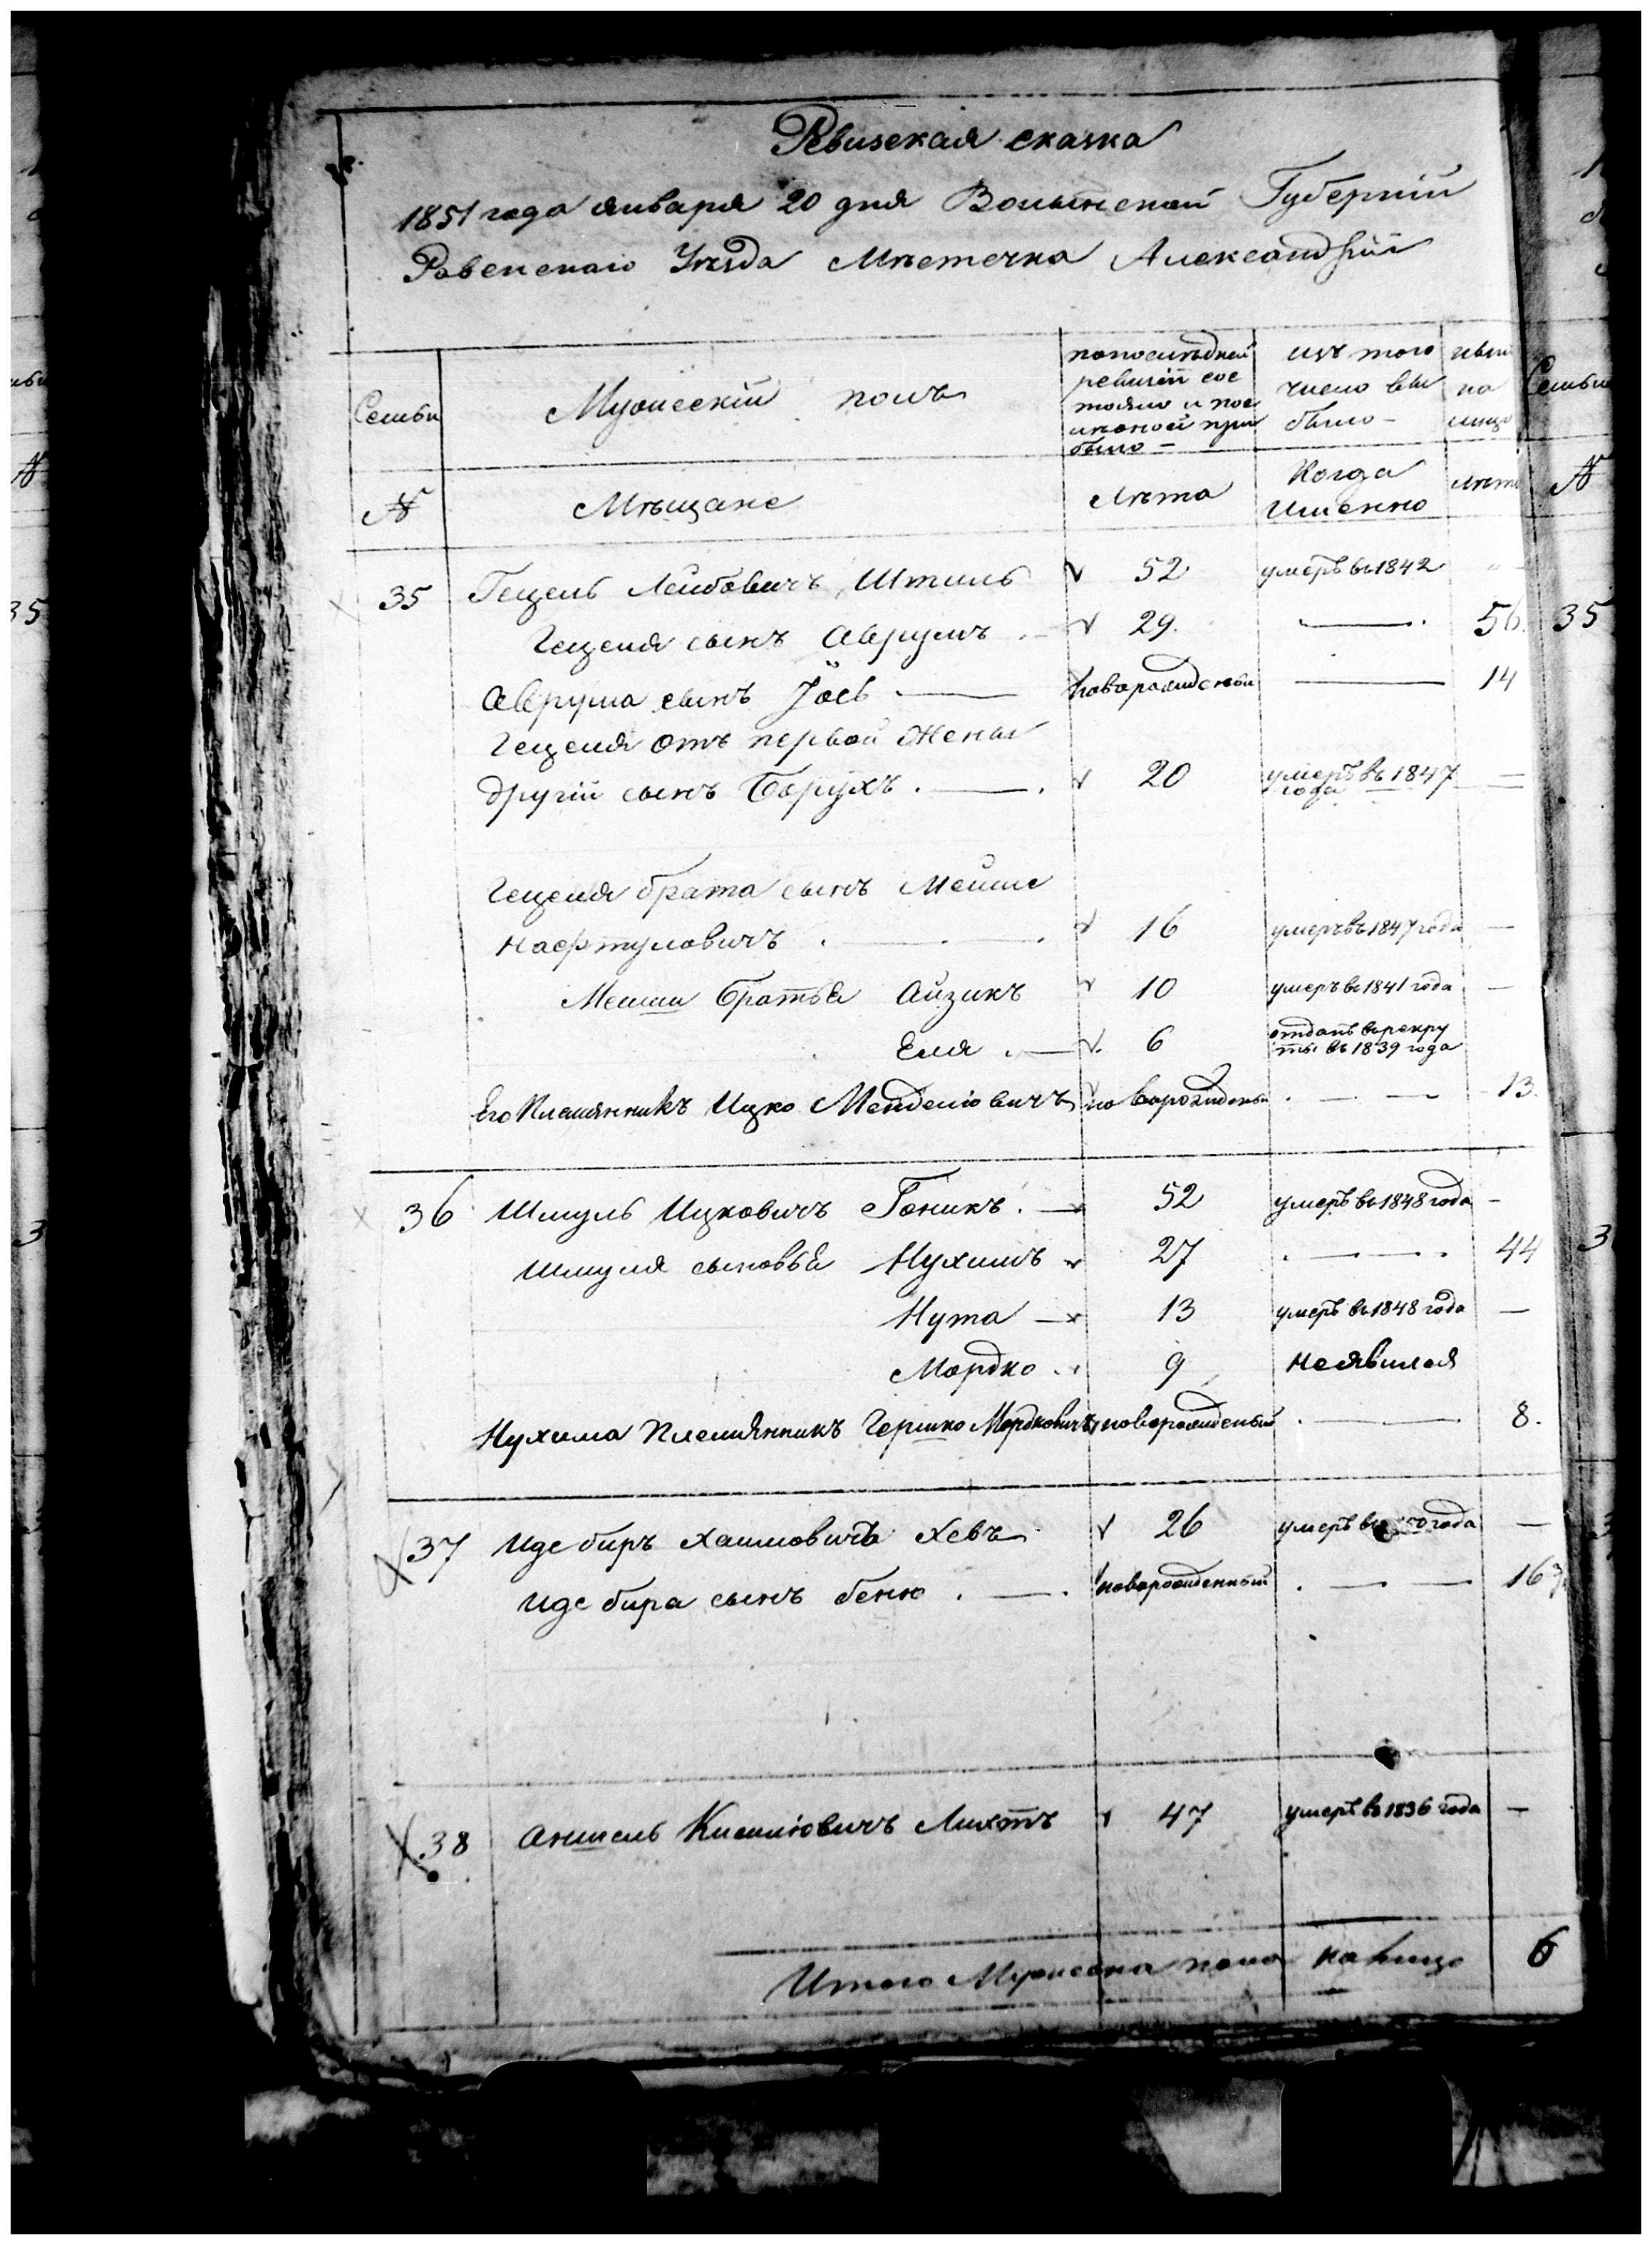 Ревизская сказка
1851 года января 20 дня Волынской Губерніи
Ровенскаго Уезда Местечка Александріи
Семьи
Мужескій полъ
По последней ревизіи состояло и после оной прибыло
Изъ того число выбыло
ныне на лицо
Семьи
№
Мещане
Лета
Когда Именно
Лета
№
35 Гецель Лейбовичъ Штиль 52 умеръ въ 1842
Гецеля сынъ Аврумъ 29 56 35
Аврума сынъ Іось новорожденый 14
Гецеля отъ первой Жены
другій сынъ Борухъ 20 умеръ въ 1847 года
Гецеля брата сынъ Мейше
Нафтуловичъ 16 умеръ въ 1847 года
Мейши Братья Айзикъ 10 умеръ въ 1841 года
Еля 6 отданъ въ рекруты въ 1839 года
Его Племянникъ Ицко Менделіовичъ новорожденый 13
36 Шмуль Ицковичъ Гоникъ 52 умеръ въ 1848 года
Шмуля сыновья Нухимъ 27 44
Нута 13 умеръ въ 1848 года
Мордко 9 Неявился
Нухима Племянникъ Гершко Мордковичъ новорожденый 8
37 Идебиръ Хаимовичъ Хевъ 26 умеръ въ года
Идебира сынъ беню новорожденный 16
38 Аншель Кисилювичъ Лихтъ 47 умеръ въ 1836 года
Итого Мужеска пола на Лицо 6